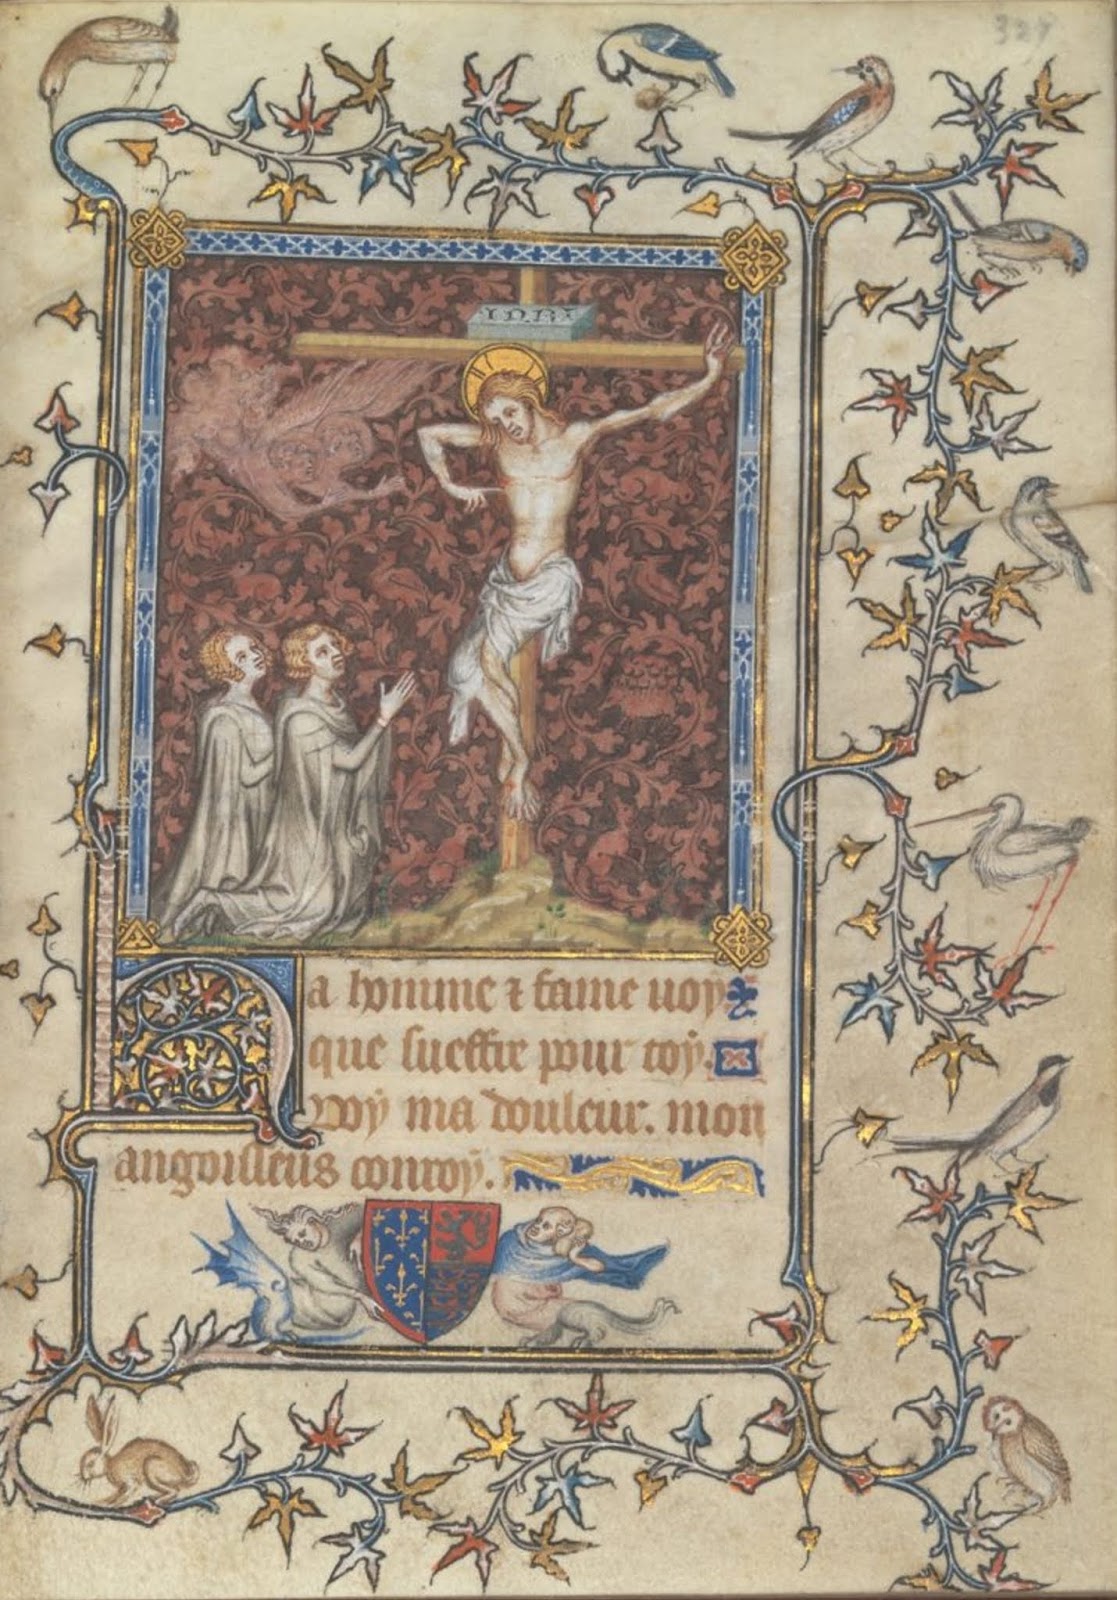 329
INRI
Ha homme & fame uoy
que sueffre pour toy.
Voy ma douleur. mon
angoisseus conroy.